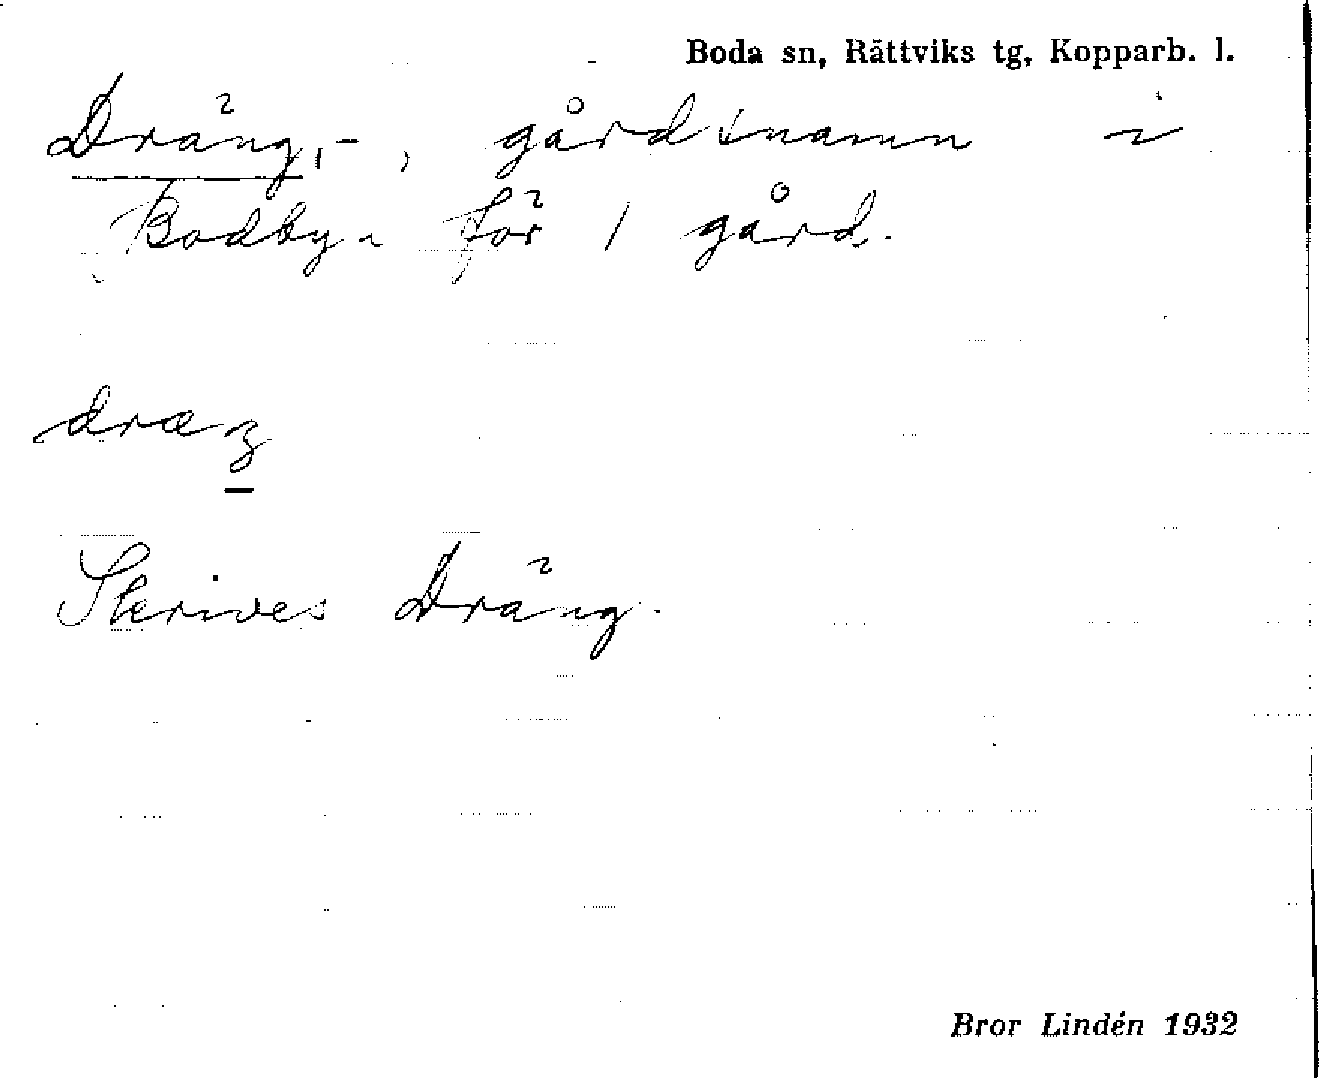 Boda sn, Rättviks tg, Kopparb. l.
Dräng,-, gårdsnamn i
Bodbyn för 1 gård.
Skrives Dräng.
Bror Lindén 1932